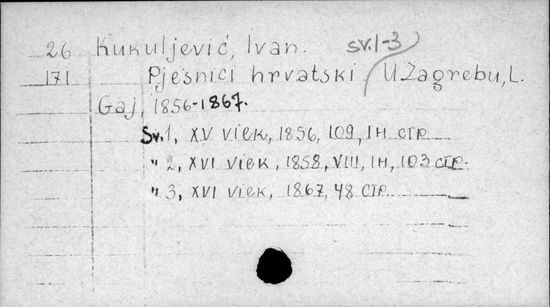 26 Kukuljević, Ivan. sv.1-3
171 Pjesnici hrvatski U Zagrebu, L.
Gaj, 1856-1867.
Sv.1, XV viek, 1856, 109, 1н. стр.
" 2, XVI viek, 1858, VIII, 1н, 103 стр.
" 3, XVI viek, 1867, 48 стр.